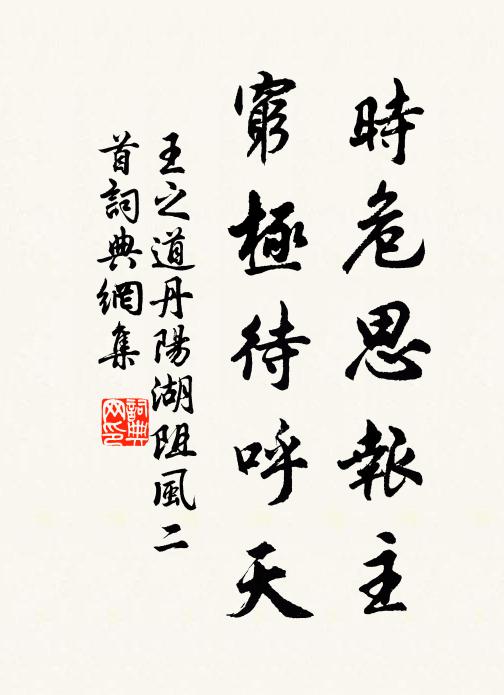 時危思報主
窮極待呼天
王之道丹陽湖阻風二
首詞典網集
詞典
網印